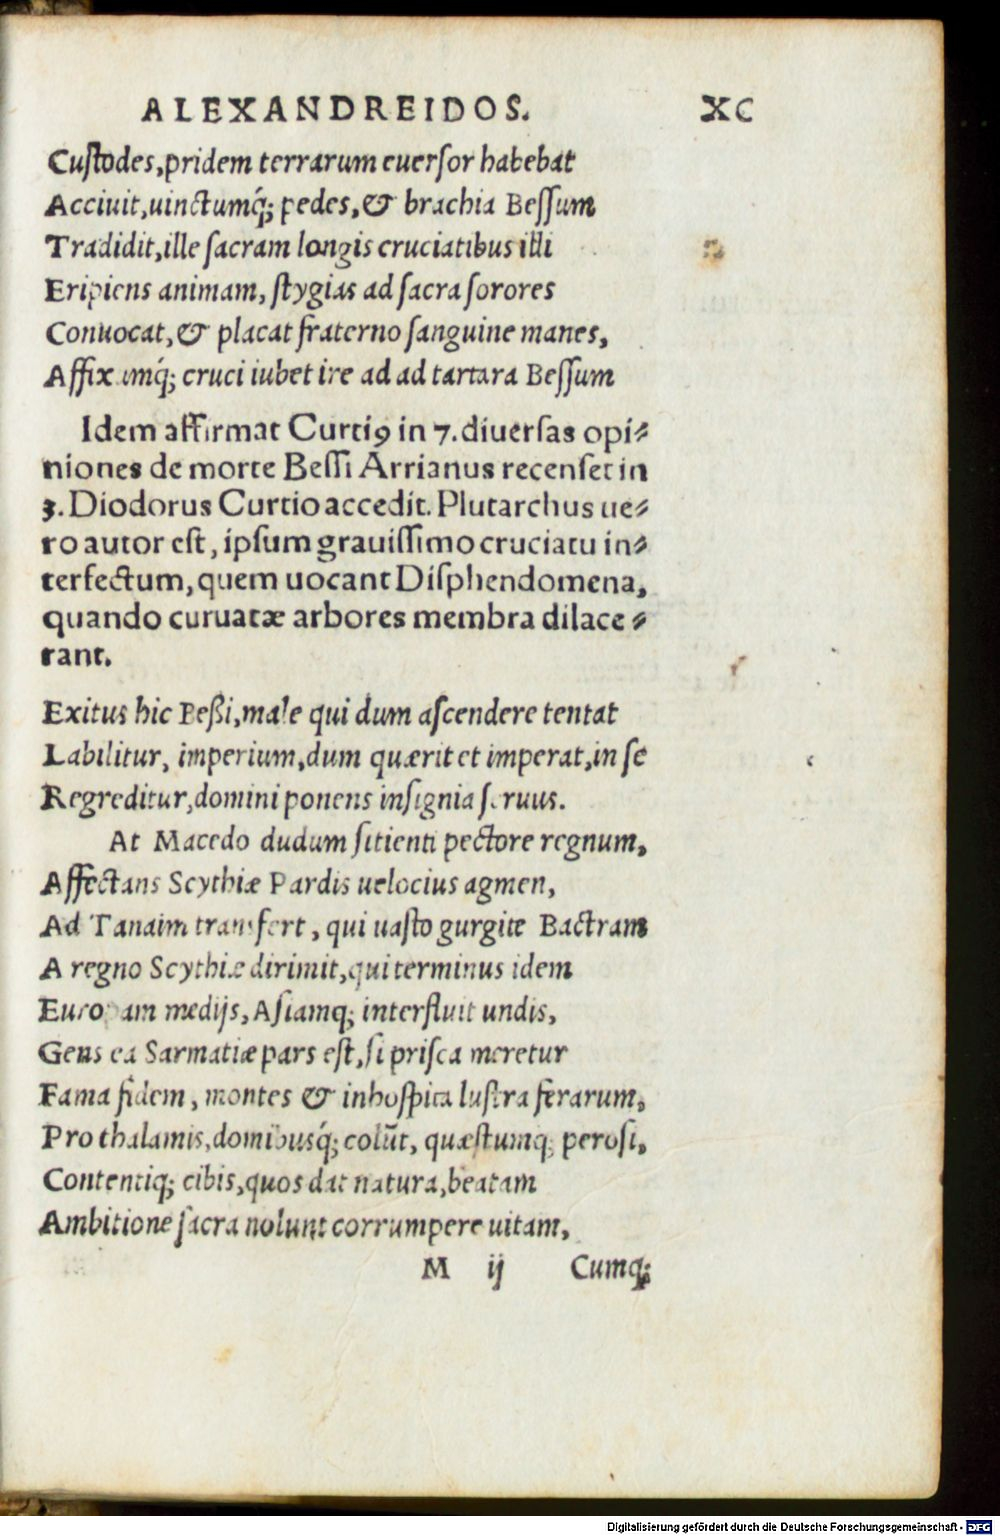 ALEXANDREIDOS. XC
Custodes,pridem terrarum euersor habebat
Acciuit,uinctumq́; pedes,& brachia Beſſum
Tradidit,ille ſacram longis cruciatibus illi
Eripiens animam, ſtygias ad ſacra ſorores
Conuocat,& placat fraterno ſanguine manes,
Affixumq́; cruci iubet ire ad ad tartara Beſſum
Idem affirmat Curtiꝰ in 7. diuerſas opi⸗
niones de morte Beſſi Arrianus recenſet in
3. Diodorus Curtio accedit. Plutarchus ue⸗
ro autor eſt, ipſum grauiſſimo cruciatu in⸗
terfectum, quem uocant Diſphendomena,
quando curuatæ arbores membra dilace⸗
rant.
Exitus hic Beßi,male qui dum aſcendere tentat
Labilitur, imperium,dum quærit et imperat,in ſe
Regreditur,domini ponens inſignia ſeruus.
At Macedo dudum ſitienti pectore regnum,
Affectans Scythiæ Pardis uelocius agmen,
Ad Tanaim transfert, qui uaſto gurgite Bactram
A regno Scythiæ dirimit,qui terminus idem
Europam medijs, Aſiamq; interfluit undis,
Gens ea Sarmatiæ pars eſt,ſi priſca meretur
Fama fidem, montes & inhoſpita luſtra ferarum,
Pro thalamis,domibusq́; colūt, quæſtumq; peroſi,
Contentiq; cibis,quos dat natura,beatam
Ambitione ſacra nolunt corrumpere uitam,
M ij Cumq;
Digitalisierung gefördert durch die Deutsche Forschungsgemeinschaft - DFG